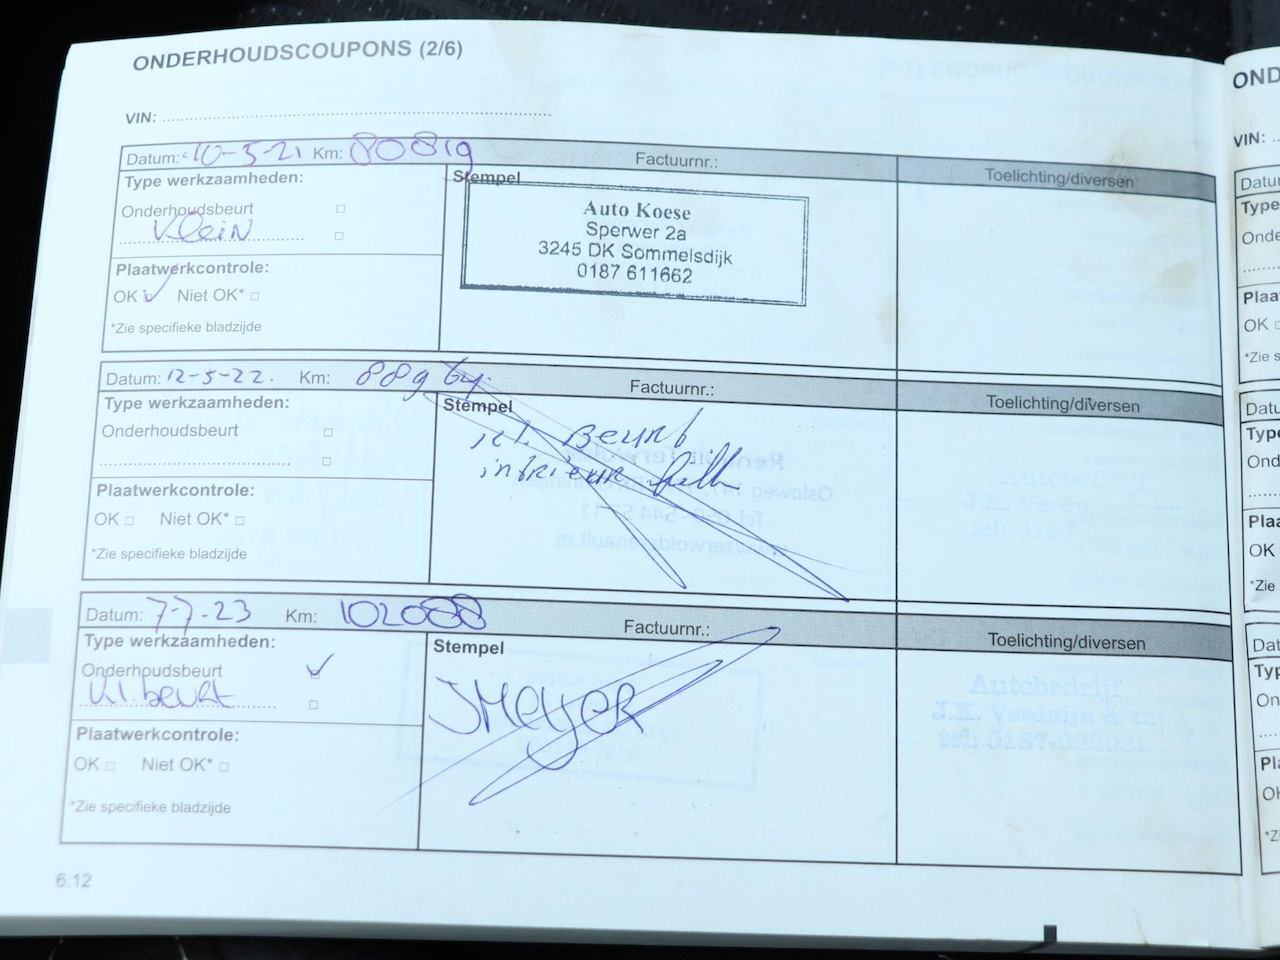 ONDERHOUDSCOUPONS (2/6)
VIN:
Datum: 10-5-21 Km: 80819 Factuurnr.: Toelichting/diversen
Type werkzaamheden: Stempel
Onderhoudsbeurt □
Klein □
Plaatwerkcontrole:
OK ✓ Niet OK* □
*Zie specifieke bladzijde
Auto Koese
Sperwer 2a
3245 DK Sommelsdijk
0187 611662
Datum: 12-5-22. Km: 889 Factuurnr.: Toelichting/diversen
Type werkzaamheden: Stempel
Onderhoudsbeurt □
□
Plaatwerkcontrole:
OK □ Niet OK* □
*Zie specifieke bladzijde
Beurt
Datum: 7-7-23 Km: 102088 Factuurnr.: Toelichting/diversen
Type werkzaamheden: Stempel
Onderhoudsbeurt ✓
kl. beurt □
Plaatwerkcontrole:
OK □ Niet OK* □
*Zie specifieke bladzijde
JMeyer
6.12
OND
VIN:
Datu
Type
Onde
Plaa
OK
*Zie s
Datu
Type
Ond
Plaa
OK
*Zie
Dat
Typ
On
Pla
OK
*Z